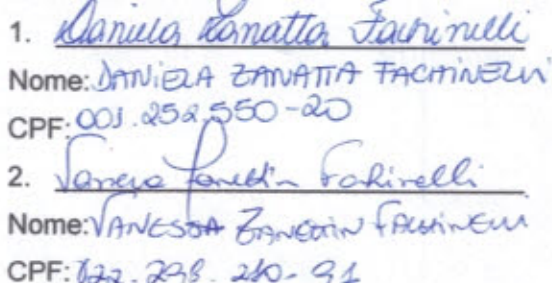 1. Daniela Zanatta Fachinelli
Nome: DANIELA ZANATTA FACHINELLI
CPF: 001.252.550-20
2. Vanessa Zanettin Fachinelli
Nome: VANESSA ZANETTIN FACHINELLI
CPF: 022.298.210-91